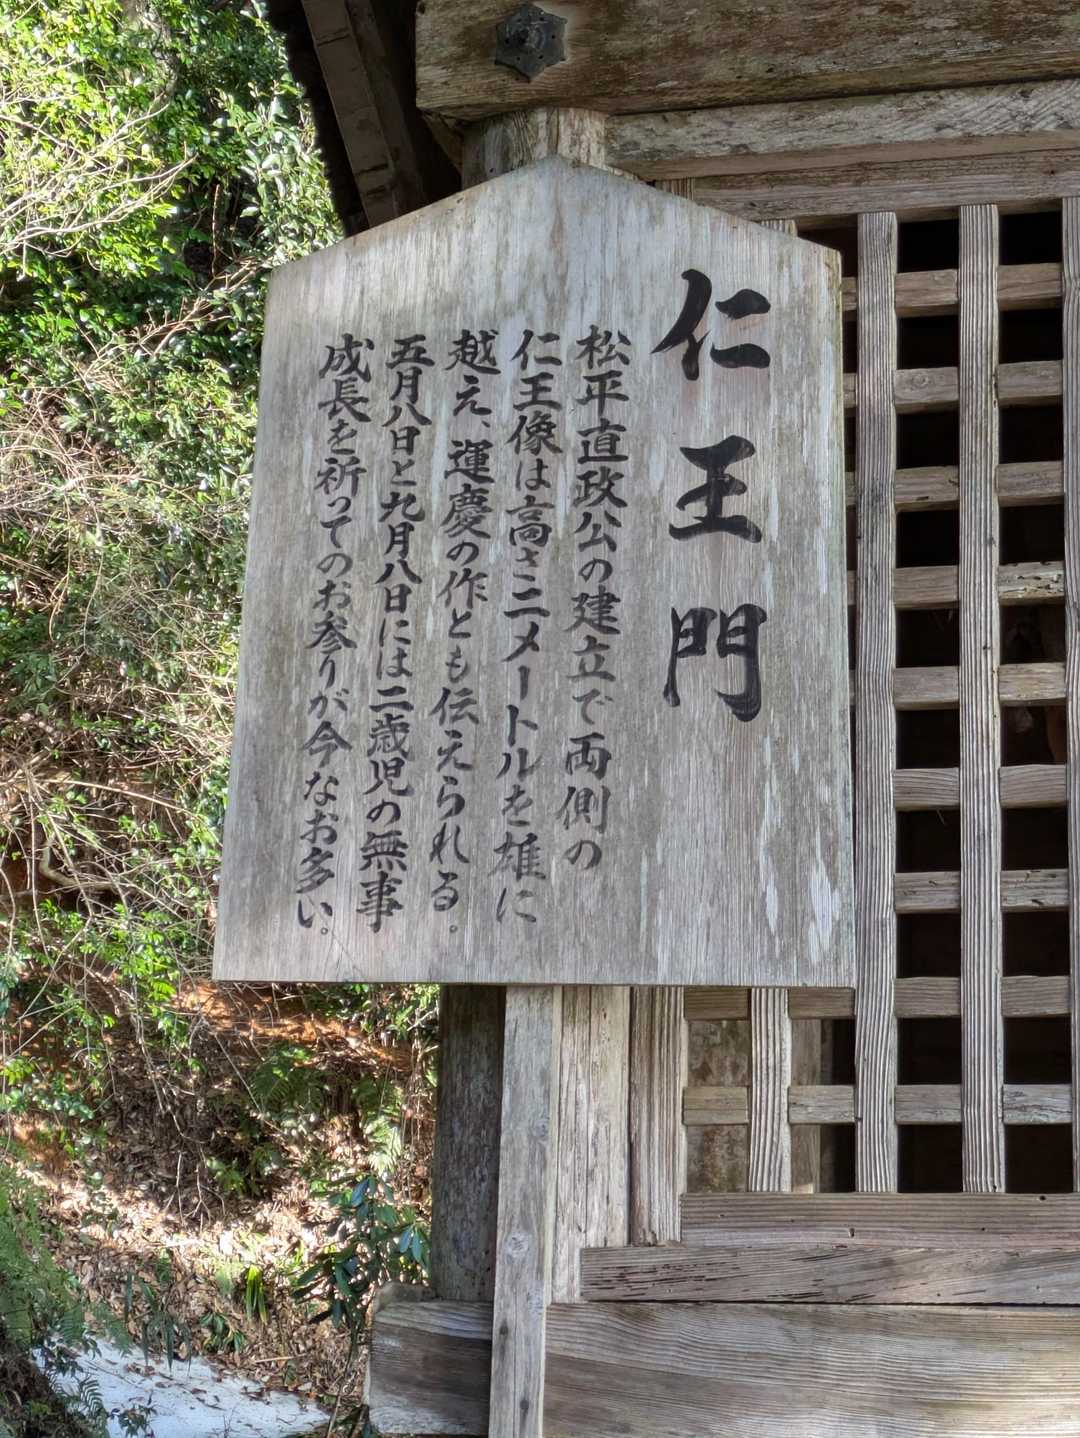 仁王門
松平直政公の建立で両側の
仁王像は高さ二メートルを雄に
越え、運慶の作とも伝えられる。
五月八日と九月八日には二歳児の無事
成長を祈ってのお参りが今なお多い。